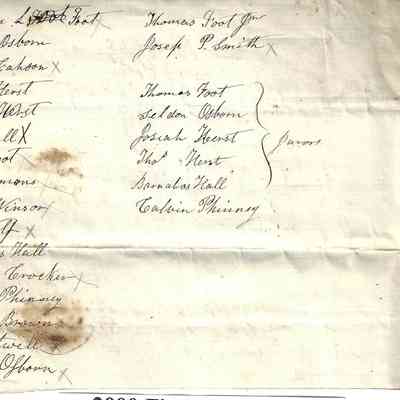 Foot Thomas Foot Jnr
Osborn Josep P. Smith X
Cahoon X
Herst Thomas Foot
Herst Seldon Osborn
ll X Josiah Herst Jurors
oot X Thos Herst
mons X Barnabas Hall
Winsor X Calvin Phinney
ff X
Hall
Crocker X
Phinney
Brown
twell X
Osborn X